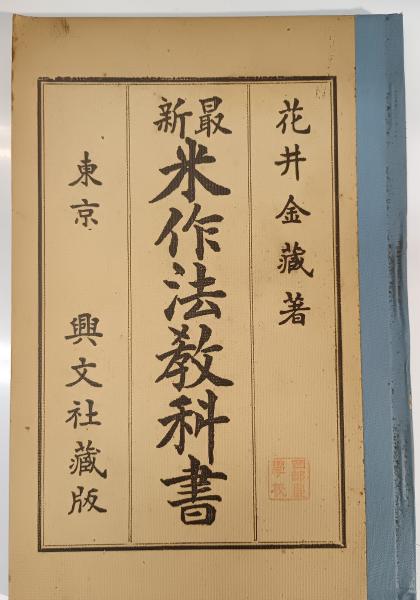 花井金藏著
最新
米作法教科書
東京　興文社藏版